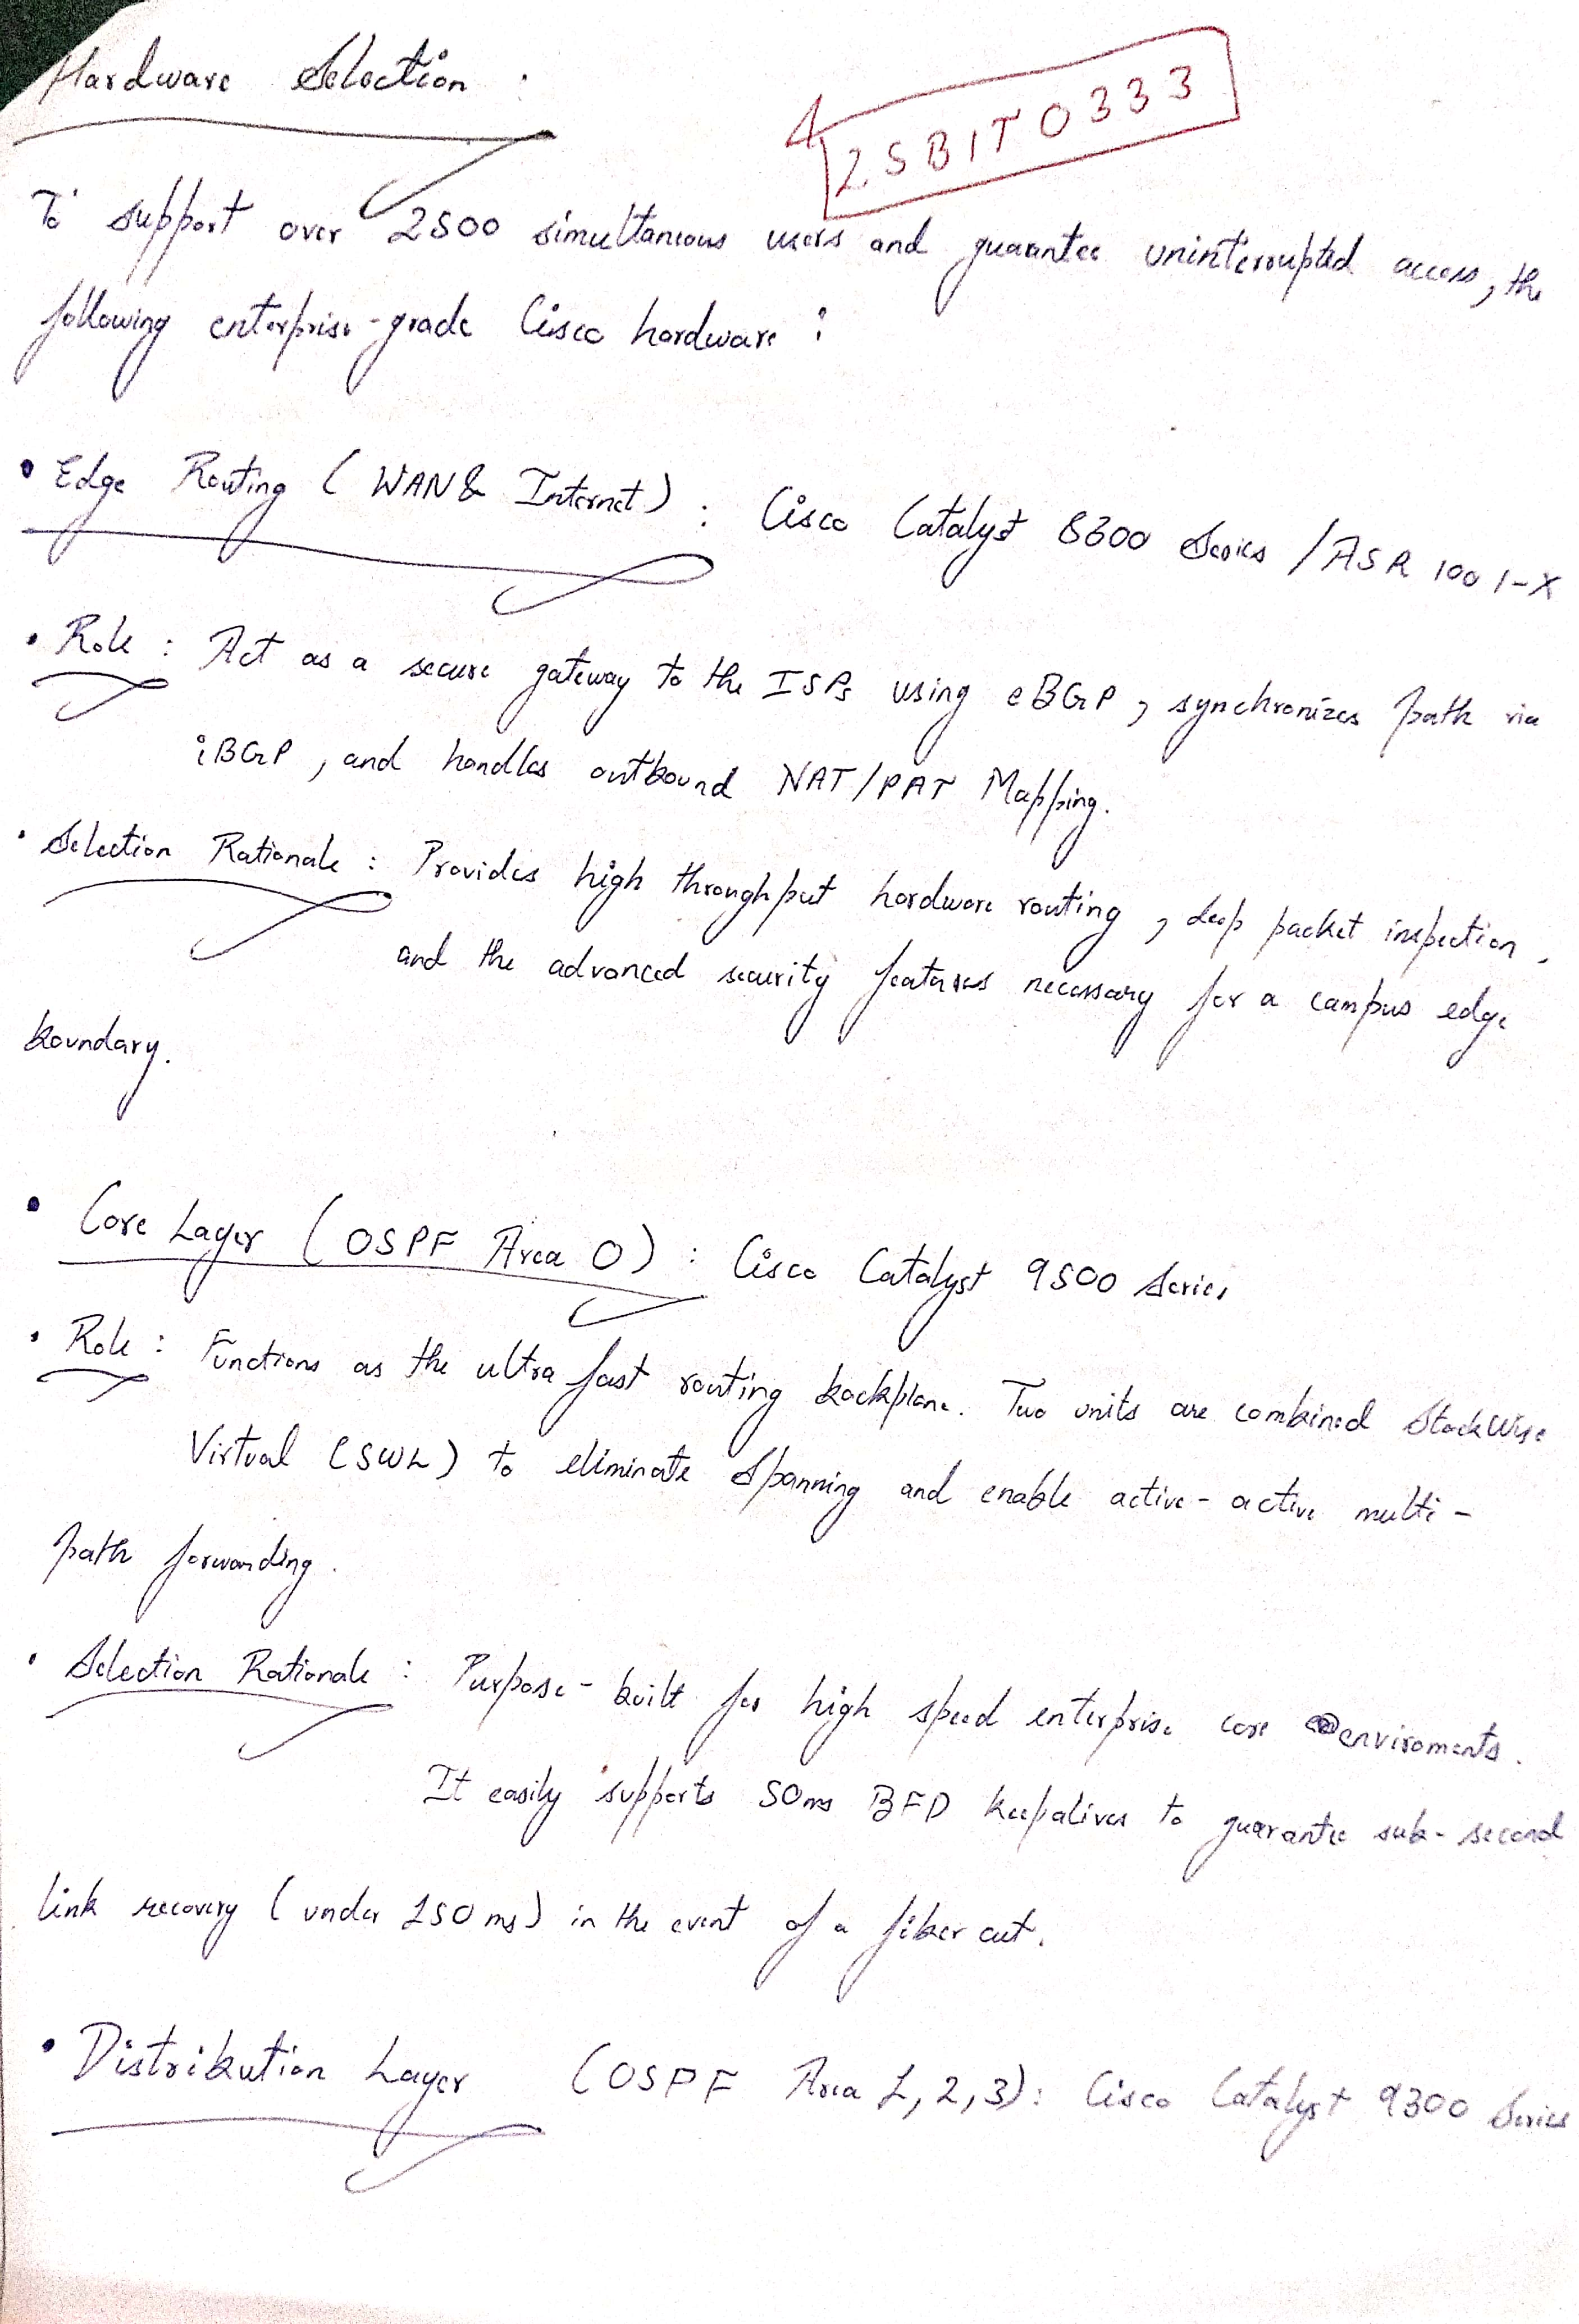 Hardware Selection :
25BIT0333
To support over 2500 simultaneous users and guarantee uninterrupted access, the
following enterprise-grade Cisco hardware :
• Edge Routing ( WAN & Internet ) : Cisco Catalyst 8300 Series / ASR 1001-X
• Role : Act as a secure gateway to the ISPs using eBGP, synchronizes path via
iBGP, and handles outbound NAT/PAT Mapping.
• Selection Rationale : Provides high throughput hardware routing, deep packet inspection,
and the advanced security features necessary for a campus edge
boundary.
• Core Layer ( OSPF Area 0 ) : Cisco Catalyst 9500 Series
• Role : Functions as the ultra fast routing backplane. Two units are combined StackWise
Virtual (SWL) to eliminate Spanning and enable active-active multi-
path forwarding.
• Selection Rationale : Purpose-built for high speed enterprise core enviroments.
It easily supports 50ms BFD keepalives to guarantee sub-second
link recovery ( under 150 ms ) in the event of a fiber cut.
• Distribution Layer (OSPF Area 1, 2, 3) : Cisco Catalyst 9300 Series